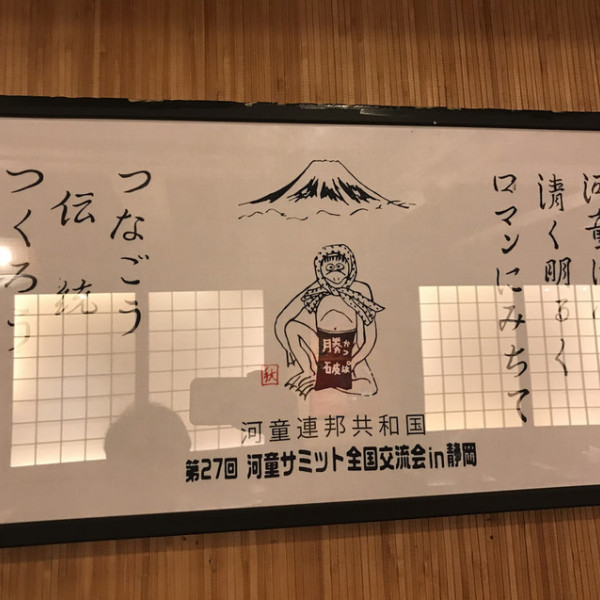 河童は
清く明るく
ロマンにみちて
勝 かっ
破 ぱ
秋
河童連邦共和国
第27回 河童サミット全国交流会in静岡
つなごう
伝統
つくろう